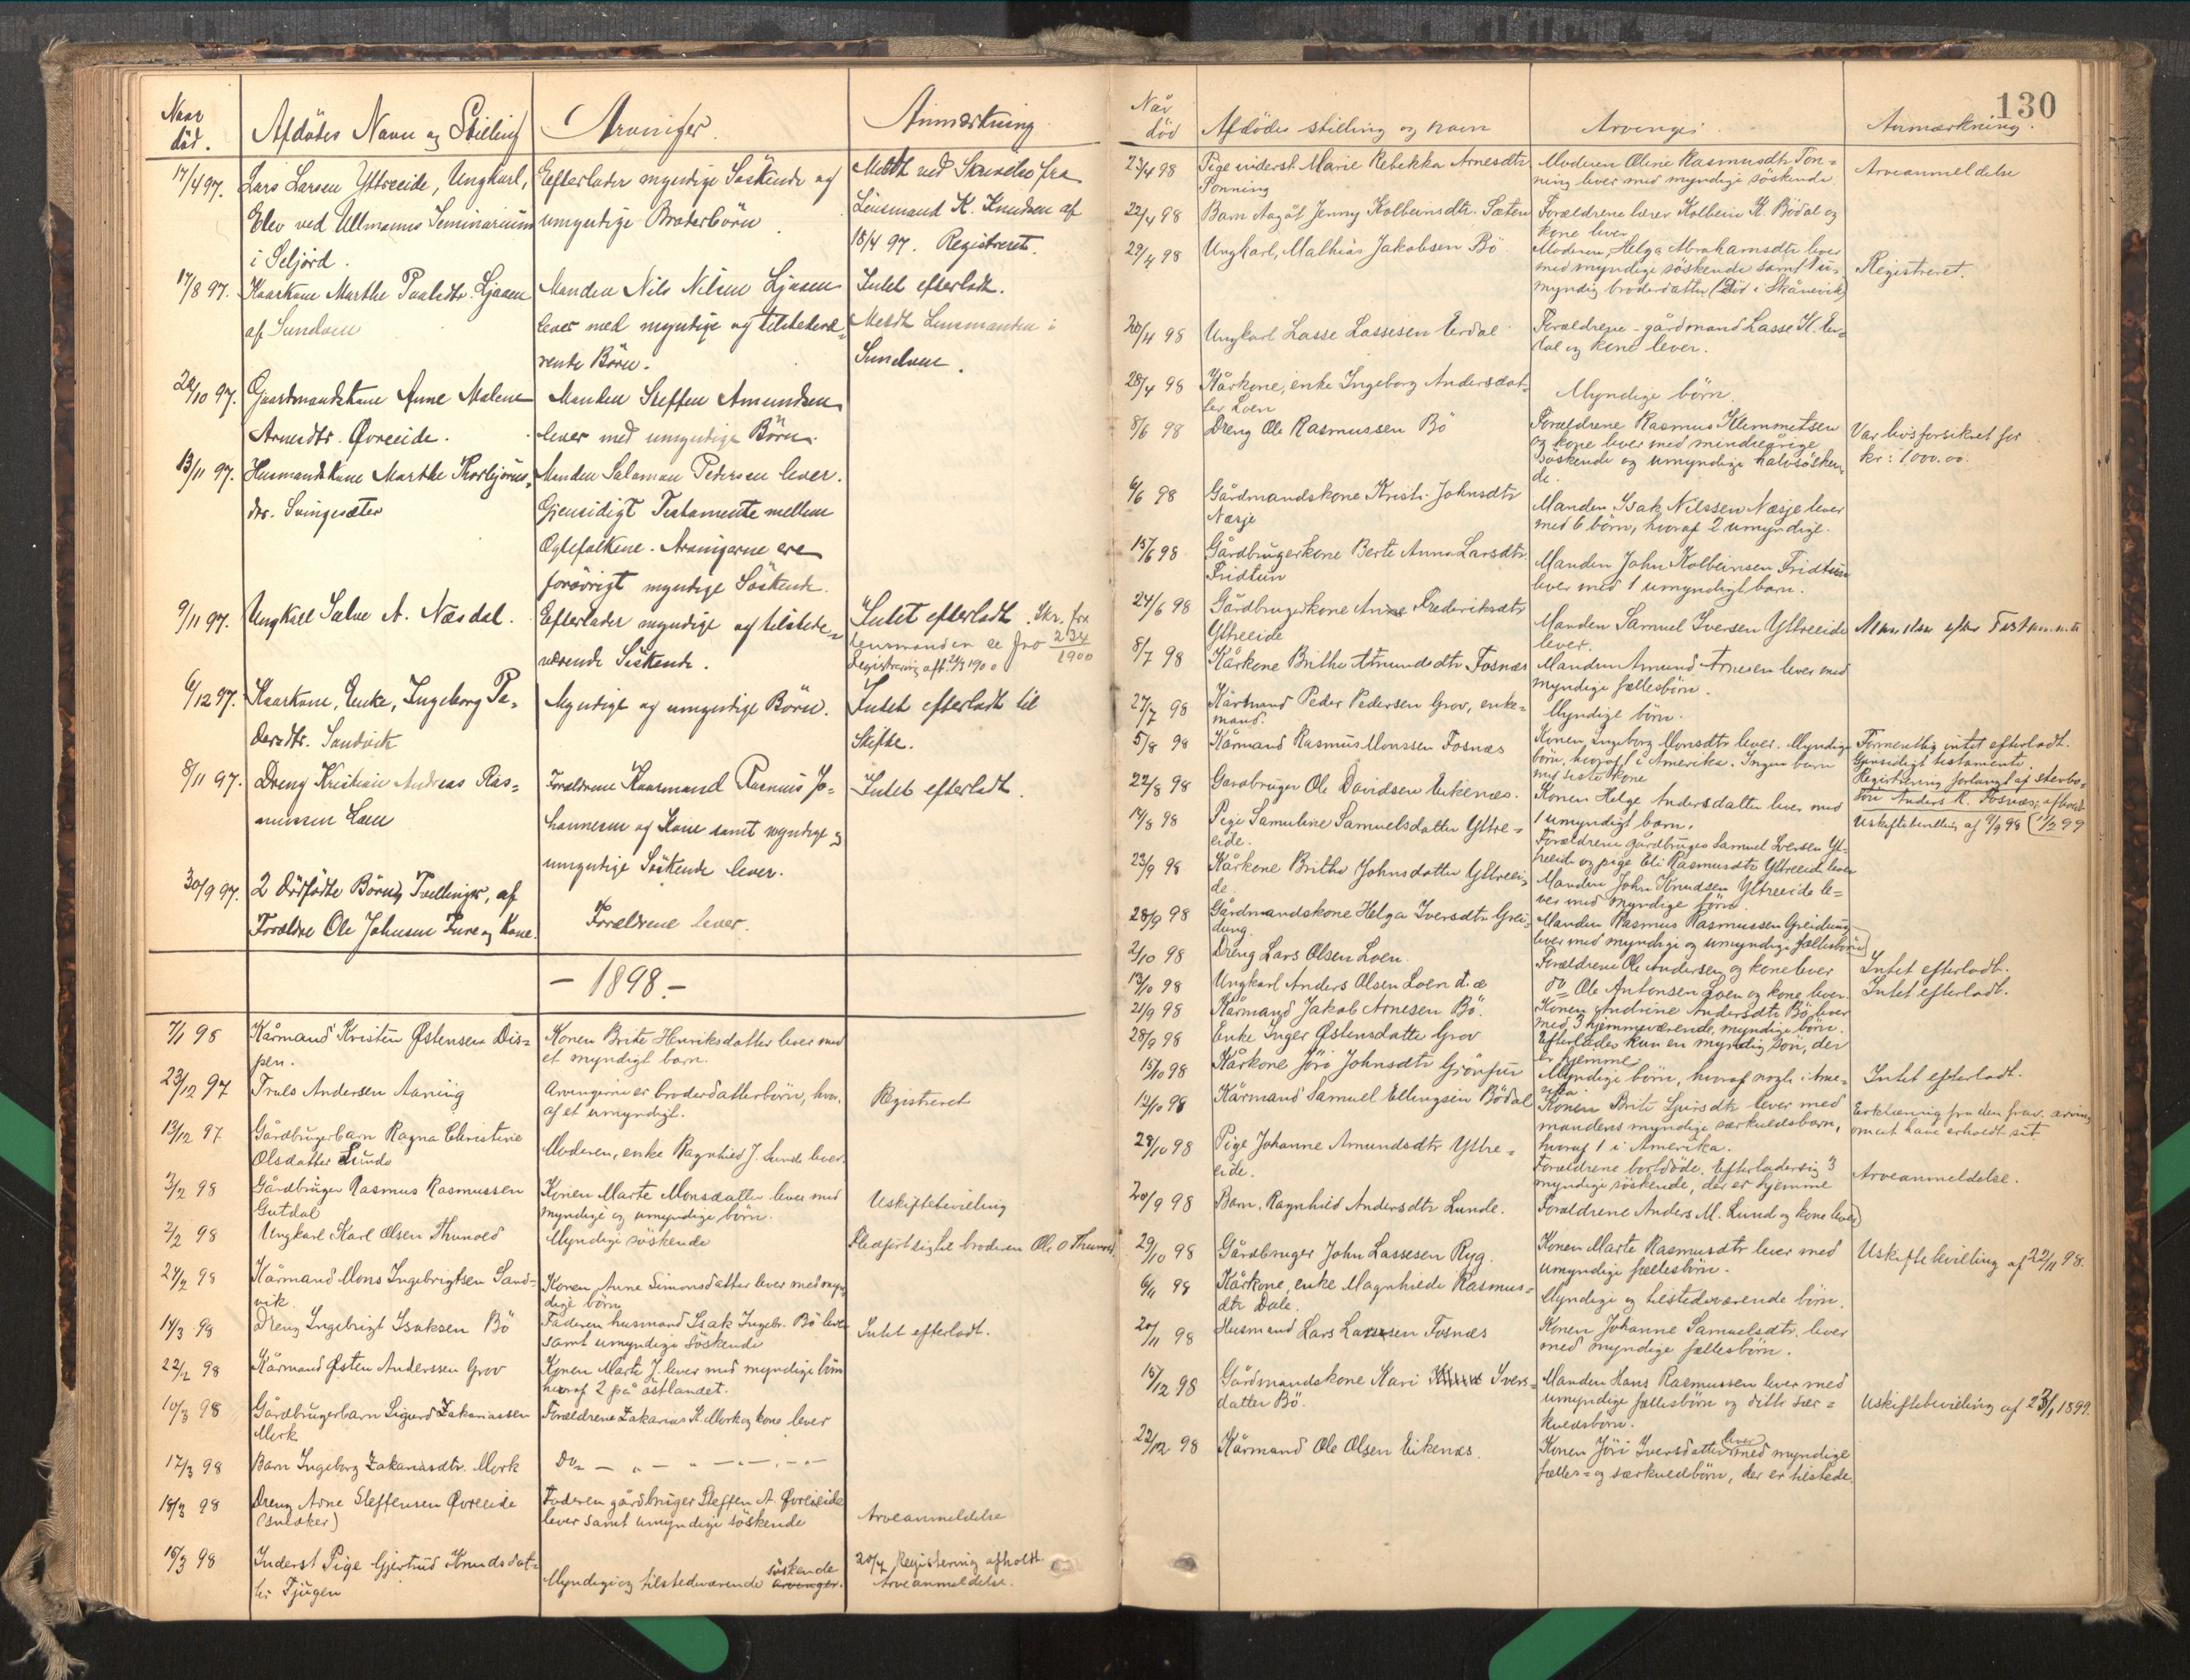 Naar død. Afdødes Navn og Stilling Arvinger. Anmærkning
17/4 97. Lars Larsen Yttreeide, Ungkarl, Efterlader myndige Söskende og Meldt ved Skrivelse fra
Elev ved Ullmanns Seminarium umyndige Broderbörn. Lensmand K. Knudsen af
i Seljord. 18/4 97. Registreret.
17/8 97. Kaarkone Marthe Paulsdtr. Ljaaen Manden Nils Nilsen Ljaaen Intet efterladt.
af Sundalen lever med myndige og tilstedevæ= Meldt Lensmanden i
rende Börn. Sundalen.
20/10 97. Gaardmandskone Anne Malene Manden Steffen Amundsen
Arnesdtr. Øvreeide. lever med umyndige Börn.
13/11 97. Husmandskone Marthe Thorbjørns= Manden Salamon Pedersen lever.
dtr. Svingesæter Gjensidigt Testamente mellem
Ægtefolkene. Arvingerne ere
forövrigt myndige Söskende.
9/11 97. Ungkarl Salve A. Næsdal. Efterlader myndige og tilstede= Intet efterladt. Skr. fra
værende Söskende. lensmanden se Jno 234/1900
Registrering afh. 2/3 1900
6/12 97. Kaarkone, Enke, Ingeborg Pe= Myndige og umyndige Börn. Intet efterladt til
dersdtr. Sandvik Skifte.
8/11 97. Dreng Kristian Andreas Ras= Forældrene Kaarmand Rasmus Jo= Intet efterladt.
mussen Loen hannesen og Kone samt myndige og
umyndige Söskende lever.
30/9 97. 2 dödfödte Börn, Tvellinger, af
Forældre Ole Johnsen Fure og Kone. Forældrene lever.
- 1898. -
7/1 98 Kårmand Kristen Østensen Dis= Konen Brite Henriksdatter lever med
pen. et myndigt barn.
23/12 97 Truls Andersen Aaning Arvingerne er broderdatterbörn, hvor= Registreret
af et umyndigt.
13/12 97 Gårdbrugerbarn Ragna Christine
Olsdatter Lunde Moderen, enke Ragnhild J. Lunde lever.
3/2 98 Gårdbruger Rasmus Rasmussen Konen Marte Monsdatter lever med Uskiftebevilling
Gutdal myndige og umyndige börn.
2/2 98 Ungkarl Karl Olsen Thunold Myndige söskende Flædfört sig til broderen Ole O Thunold.
24/2 98 Kårmand Mons Ingebrigtsen Sand= Konen Anne Simonsdatter lever med myn=
vik. dige börn
14/3 98 Dreng Ingebrigt Isaksen Bö Faderen husmand Isak Ingebr. Bö lever Intet efterladt.
samt umyndige söskende
22/2 98 Kårmand Østen Anderssen Grov Konen Marte J. lever med myndige börn
hvoraf 2 på östlandet.
10/3 98 Gårdbrugerbarn Sigurd Zakariassen Forældrene Zakarias K. Mork og kone lever
Mork
17/3 98 Barn Ingeborg Zakariasdtr. Mork Do — „ — „ — „ — „ —
18/3 98 Dreng Arne Steffensen Øvreeide Faderen gårdbruger Steffen A. Øvreeide
(snedker) lever samt umyndige söskende Arveanmeldelse
16/3 98 Inderst Pige Gjertrud Knudsdat= söskende 20/4 Registering afholdt.
ter Tjugen Myndige og tilstedeværende arvinger. Arveanmeldelse.
130
Når død Afdödes stilling og navn Arvinger Anmærkning.
23/4 98 Pige inderst Marie Rebekka Arnesdtr Moderen Oline Rasmusdtr Ton= Arveanmeldelse
Tonning ning lever med myndige söskende.
22/4 98 Barn Aagåt Jenny Kolbeinsdtr. Sæten Forældrene lærer Kolbein K. Bödal og
kone lever
29/4 98 Ungkarl, Mathias Jakobsen Bö Moderen, Helga Abrahamsdtr lever
med myndige söskende samt 1 u= Registreret.
myndig broderdatter (Död i Skånevik)
20/4 98 Ungkarl Lasse Lassesen Erdal Forældrene - gårdmand Lasse K. Er=
dal og kone lever.
28/4 98 Kårkone, enke Ingeborg Andersdat= Myndige börn.
ter Loen
8/6 98 Dreng Ole Rasmussen Bö Forældrene Rasmus Klemmetsen Var livsforsikret for
og kone lever med mindreårige kr: 1,000.00.
söskende og umyndige halvsösken=
de.
6/6 98 Gårdmandskone Kristi Johnsdtr Manden Isak Nilssen Nesje lever
Nesje med 6 börn, hvoraf 2 umyndige.
15/6 98 Gårdbrugerkone Berte Anna Larsdtr Manden John Kolbeinsen Fridtun
Fridtun lever med 1 umyndigt barn.
24/6 98 Gårdbrugerkone Anne Frederiksdtr Manden Samuel Iversen Yttreeide
Yttreeide lever.
8/7 98 Kårkone Brithe Amundsdtr Fosnæs Manden Amund Arnesen lever med
myndige fællesbörn.
27/7 98 Kårmand Peder Pedersen Grov, enke= Myndige börn.
mand.
5/8 98 Kårmand Rasmus Monssen Fosnæs Konen, Ingeborg Monsdtr lever. Myndige Formentlig intet efterladt.
börn, hvoraf 1 i Amerika. Ingen barn Gjensidigt testamente.
med siste kone Registrering forlangt af stervbo=
22/8 98 Gårdbruger Ole Davidsen Eikenæs. Konen Helge Andersdatter lever med Uskiftebevilling af 4/9 98
1 umyndigt barn.
14/8 98 Pige Samuline Samuelsdatter Yttre= Forældrene gårdbruger Samuel Iversen Yt=
eide. treeide og pige Eli Rasmusdtr Yttreeide lever
23/9 98 Kårkone Brithe Johnsdatter Yttreei= Manden John Knudsen Yttreeide le=
de. ver med myndige börn
28/9 98 Gårdmandskone Helga Iversdtr Grei= Manden Rasmus Rasmussen Greidung
dung. lever med myndige og umyndige fællesbörn
2/10 98 Dreng Lars Olsen Loen. Forældrene Ole Andersen og kone lever Intet efterladt.
13/10 98 Ungkarl Anders Olsen Loen d. æ do Ole Antonsen Loen og kone lever. Intet efterladt.
21/9 98 Kårmand Jakob Arnesen Bö. Konen Andrine Andersdtr Bö lever
med 3 hjemmeværende, myndige börn.
28/9 98 Enke Inger Østensdatter Grov Efterlader kun en myndig sön, der
er hjemme.
15/10 98 Kårkone Jöri Johnsdtr Grönfur Myndige börn, hvoraf nogle i Ame= Intet efterladt.
rika
12/10 98 Kårmand Samuel Ellingsen Bödal Konen Brite Sjursdtr lever med Erklæring fra den frav. arving
mandens myndige særkuldsbarn, om at have erholdt sit.
hvoraf 1 i Amerika.
28/10 98 Pige Johanne Amundsdtr Yttre= Forældrene bortdöde. Efterlader sig 3 Arveanmeldelse.
eide. myndige söskende, der er hjemme
20/9 98 Barn, Ragnhild Andersdtr Lunde. Forældrene Anders M. Lunde og kone lever
29/10 98 Gårdbruger John Lassesen Ryg. Konen Marte Rasmusdtr lever med Uskiftebevilling af 22/11 98.
umyndige fællesbörn.
6/11 98 Kårkone, enke Magnhilde Rasmus= Myndige og tilstedeværende börn.
dtr Dale.
20/11 98 Husmand Lars Larssen Fosnæs Konen Johanne Samuelsdtr. lever
med myndige fællesbörn.
15/12 98 Gårdmandskone Kari Ivers= Manden Hans Rasmussen lever med Uskiftebevilling af 23/1 1899.
datter Bö. umyndige fællesbörn og ditto sær=
kuldsbörn.
22/12 98 Kårmand Ole Olsen Eikenæs. Konen Jöri Iversdatter lever med myndige
fælles= og særkuldbörn, der er tilstede.